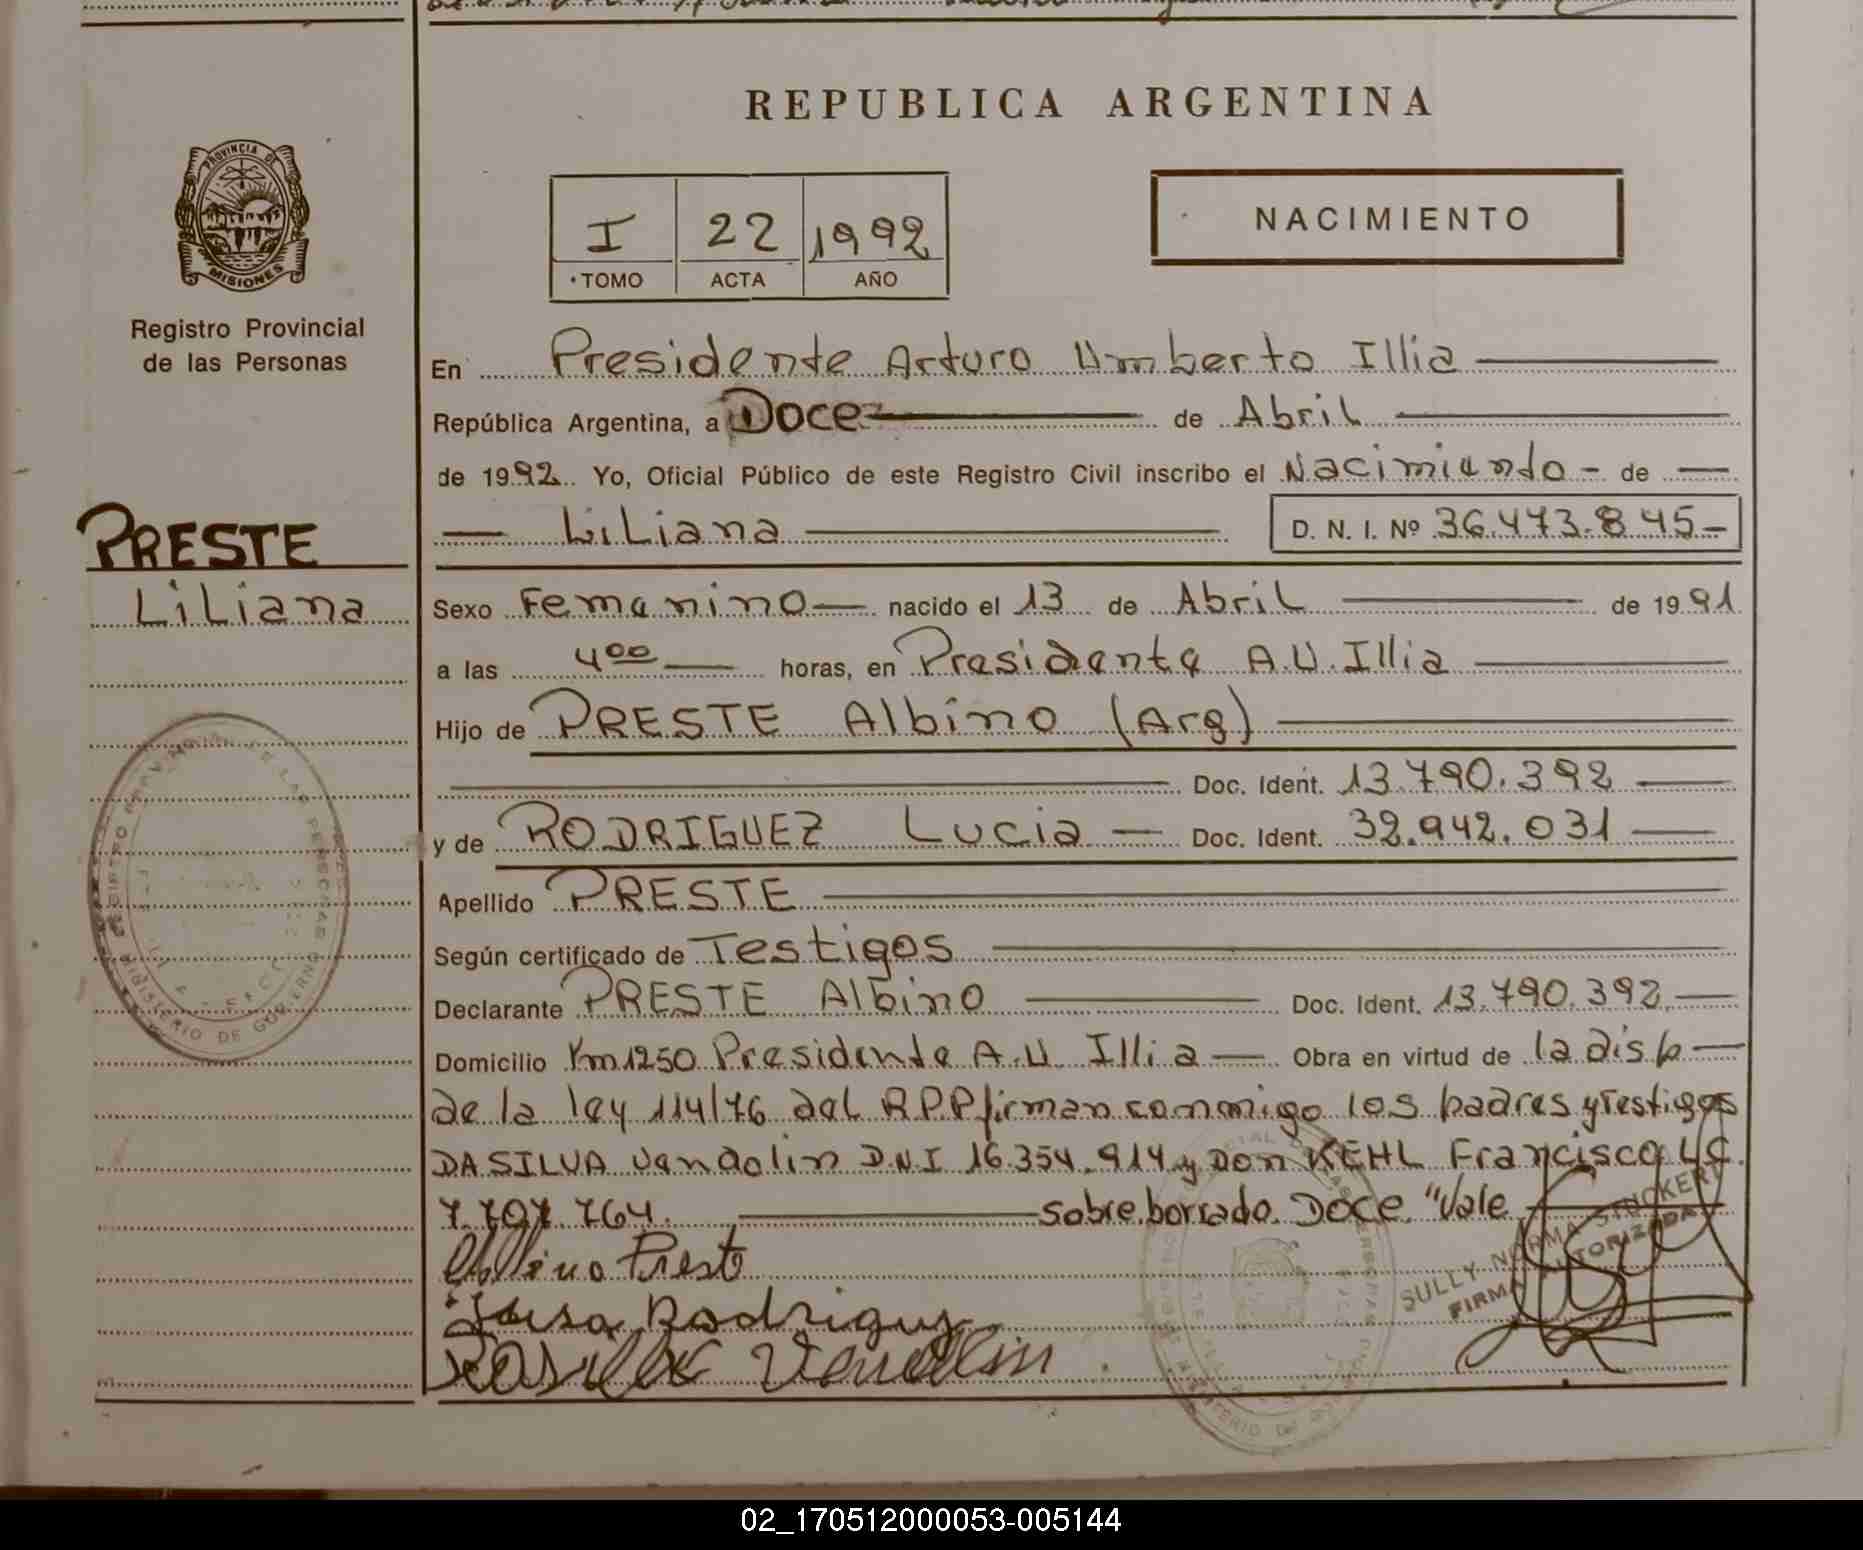 REPUBLICA ARGENTINA
PROVINCIA DE
MISIONES
Registro Provincial
de las Personas
I 22 1992
TOMO ACTA AÑO
NACIMIENTO
En Presidente Arturo Umberto Illia
República Argentina, a Doce de Abril
de 1992 Yo, Oficial Público de este Registro Civil inscribo el Nacimiento - de
Liliana D. N. I. Nº 36.473.845-
PRESTE
Liliana
Sexo Femenino nacido el 13 de Abril de 1991
a las 4⁰⁰ horas, en Presidente A.U. Illia
Hijo de PRESTE Albino (Arg)
Doc. Ident. 13.790.392
y de RODRIGUEZ Lucia Doc. Ident. 32.942.031
Apellido PRESTE
Según certificado de Testigos
Declarante PRESTE Albino Doc. Ident. 13.790.392
Domicilio Km 1250 Presidente A.U. Illia Obra en virtud de la disp
de la ley 114/76 del RPP firman conmigo los padres y Testigos
DASILVA Vendolin D.N.I 16.354.914 y Don KEHL Francisco L.C.
7.707.764. sobre borrado Doce "Vale
Albino Prest
Rodriguez
Dasilva Vendolin
SULLY NORMA STUCKERT
FIRMA AUTORIZADA
REGISTRO PROVINCIAL DE LAS PERSONAS
MINISTERIO DE GOBIERNO
02_170512000053-005144